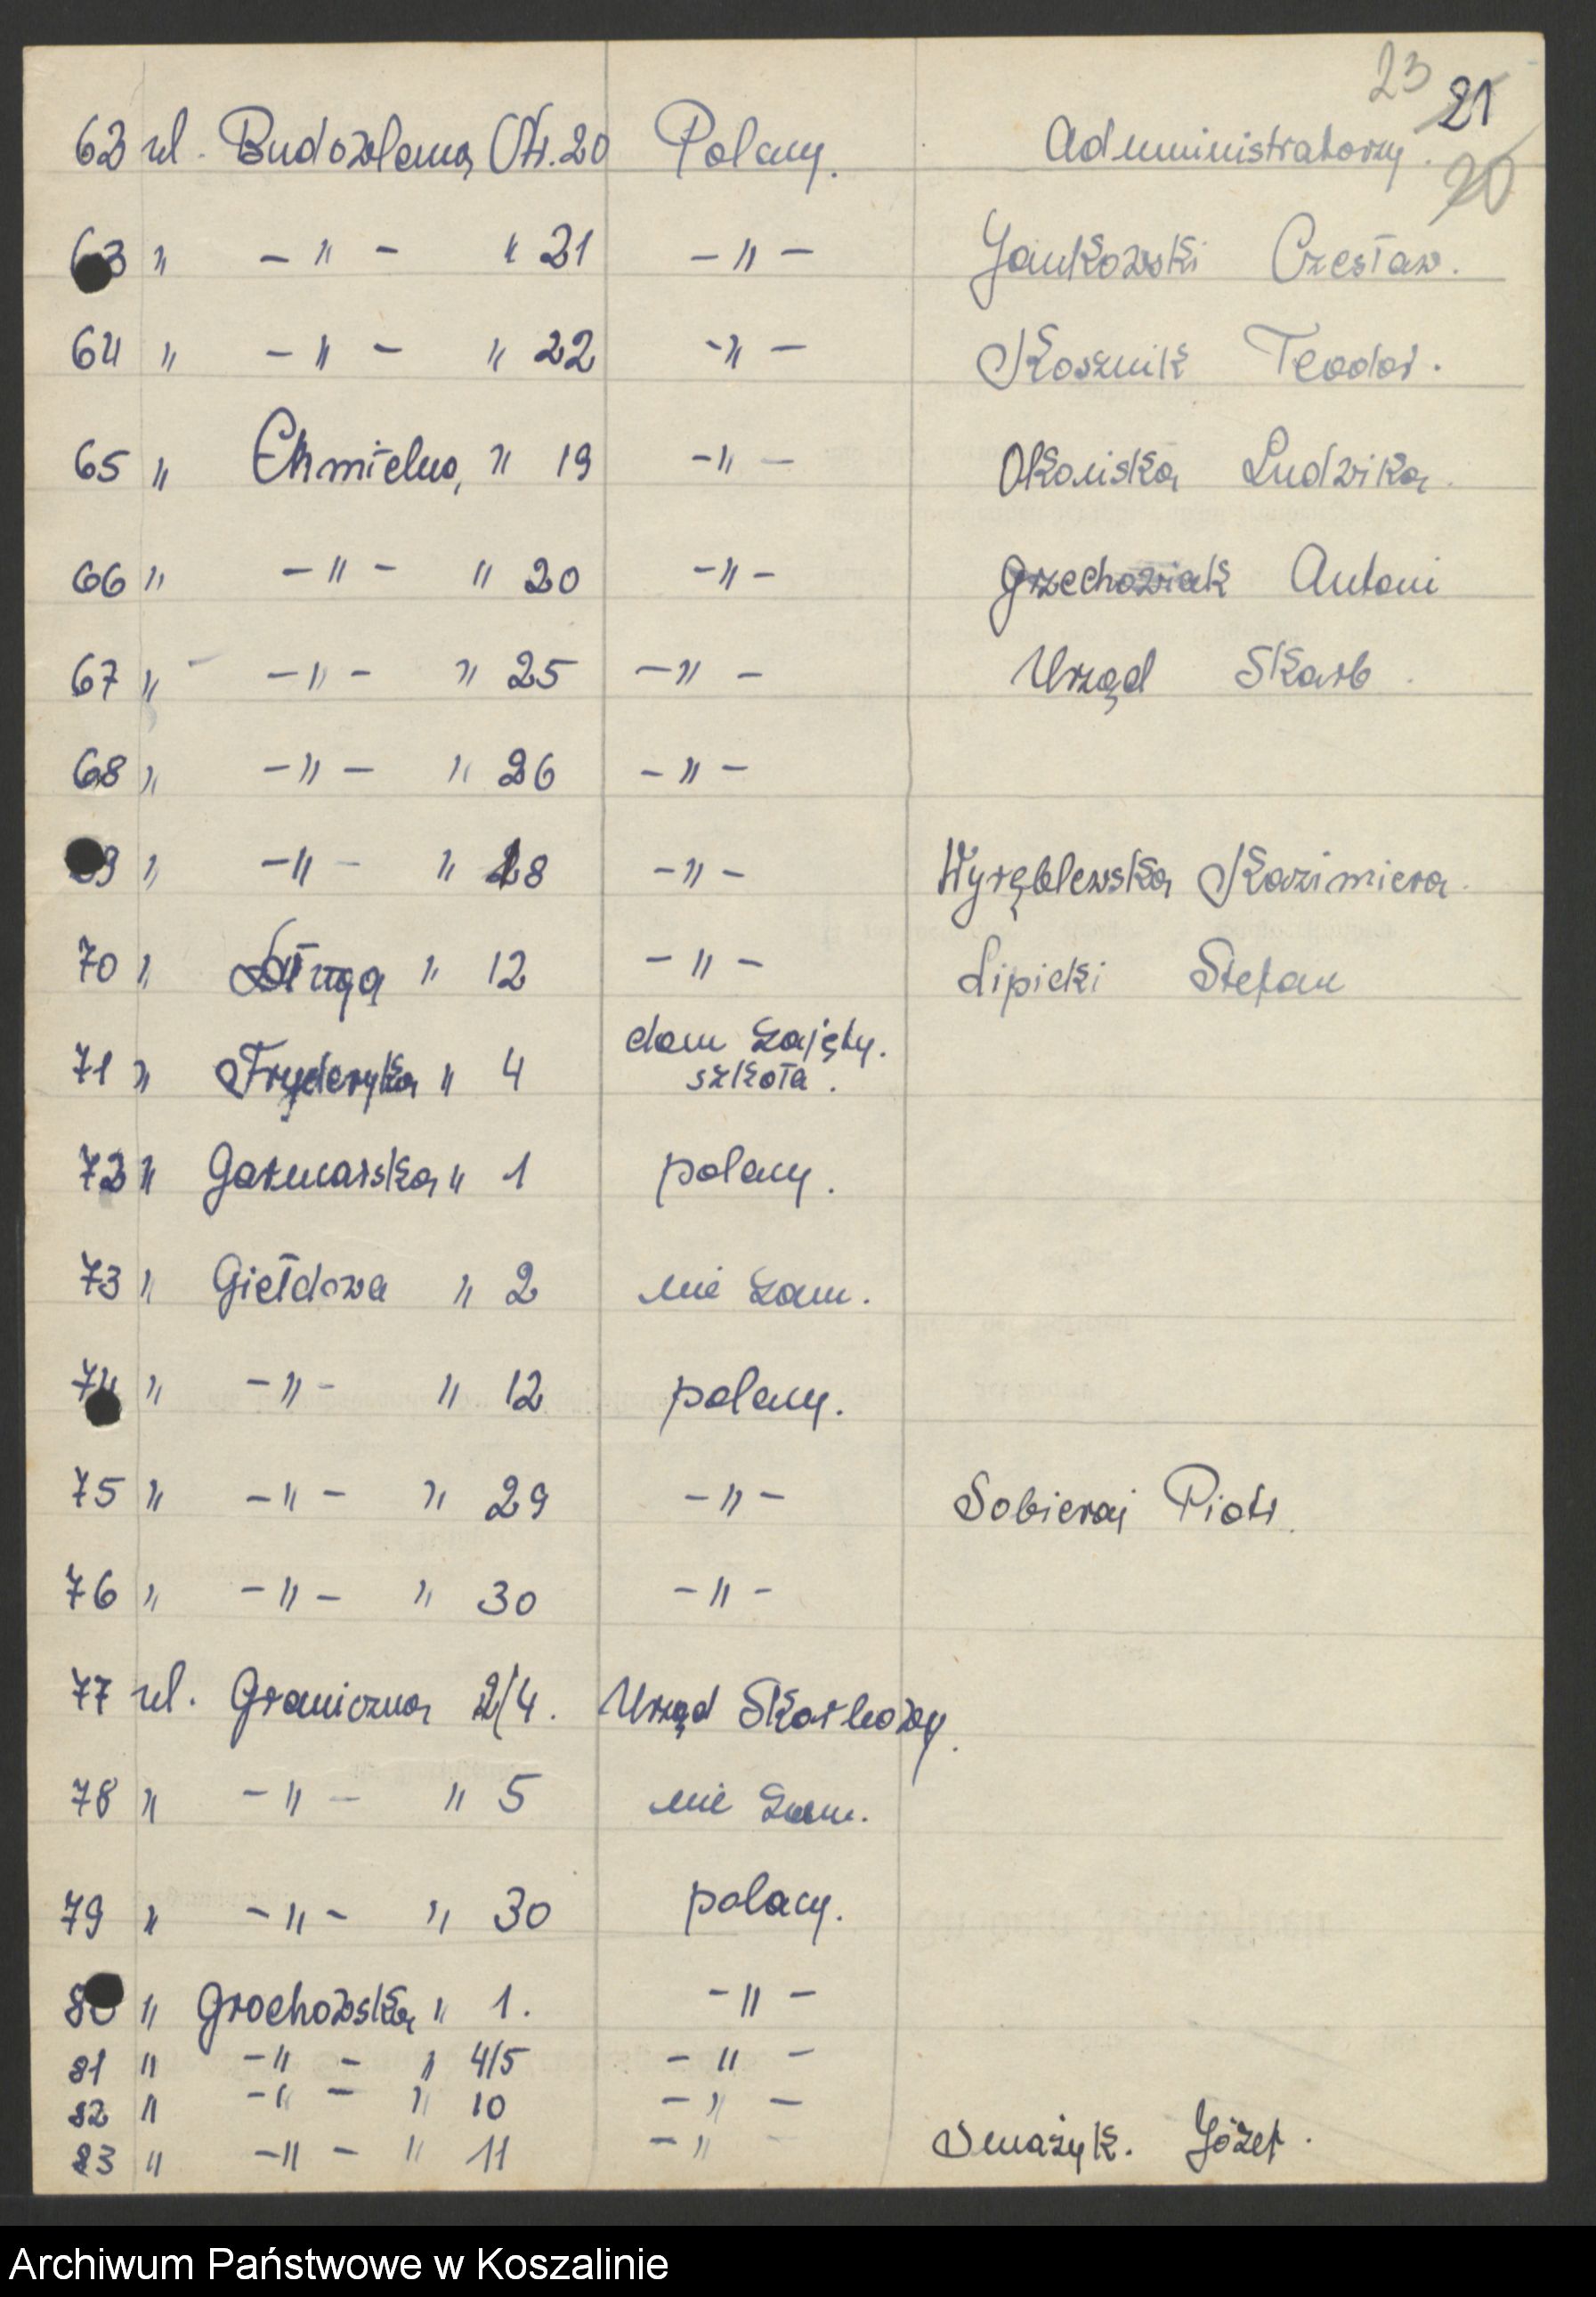 23 21
20
62 ul. Budowlana Nr. 20 Polacy. Administratorzy.
63 " - " - " 21 - " - Jankowski Czesław.
64 " - " - " 22 - " - Kosznik Teodor.
65 " Chmielna, " 19 - " - Okońska Ludwika.
66 " - " - " 20 - " - Grzechowiak Antoni
67 " - " - " 25 - " - Urząd Skarb.
68 " - " - " 26 - " -
69 " - " - " 28 - " - Wyręblewska Kazimiera.
70 " Długa " 12 - " - Lipicki Stefan
71 " Fryderyka " 4 dom zajęty.
szkoła.
72 " Garncarska " 1 polacy.
73 " Giełdowa " 2 nie zam.
74 " - " - " 12 polacy.
75 " - " - " 29 - " - Sobieraj Piotr.
76 " - " - " 30 - " -
77 ul. Graniczna 2/4. Urząd Skarbowy.
78 " - " - " 5 nie zam.
79 " - " - " 30 polacy.
80 " Grochowska " 1. - " -
81 " - " - " 4/5 - " -
82 " - " - " 10 - " -
83 " - " - " 11 - " - Smażyk. Józef.
Archiwum Państwowe w Koszalinie